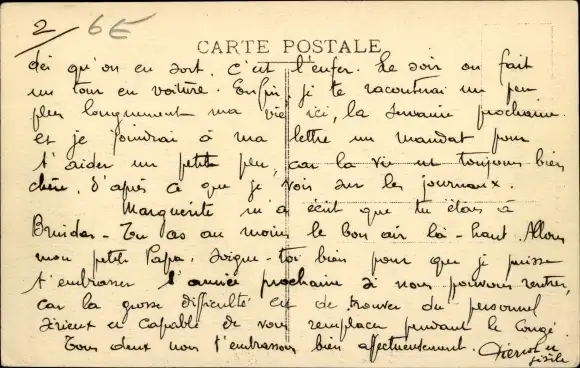 2/ 6E
CARTE POSTALE
dès qu'on en sort, c'est l'enfer. Le soir on fait
un tour en voiture. Enfin, je te raconterai un peu
plus longuement ma vie ici, la semaine prochaine
et je joindrai à ma lettre un mandat pour
t'aider un petit peu, car la vie est toujours bien
chère, d'après ce que je vois sur les journaux.
Marguerite m'a écrit que tu étais à
- Tu as au moins le bon air là-haut. Allons
mon petit Papa, soigne-toi bien pour que je puisse
t'embrasser l'année prochaine si nous pouvons rentrer,
car la grosse difficulté est de trouver du personnel
sérieux et capable de vous remplacer pendant le congé.
Tous deux nous t'embrassons bien affectueusement. Pierrot et
Gisèle